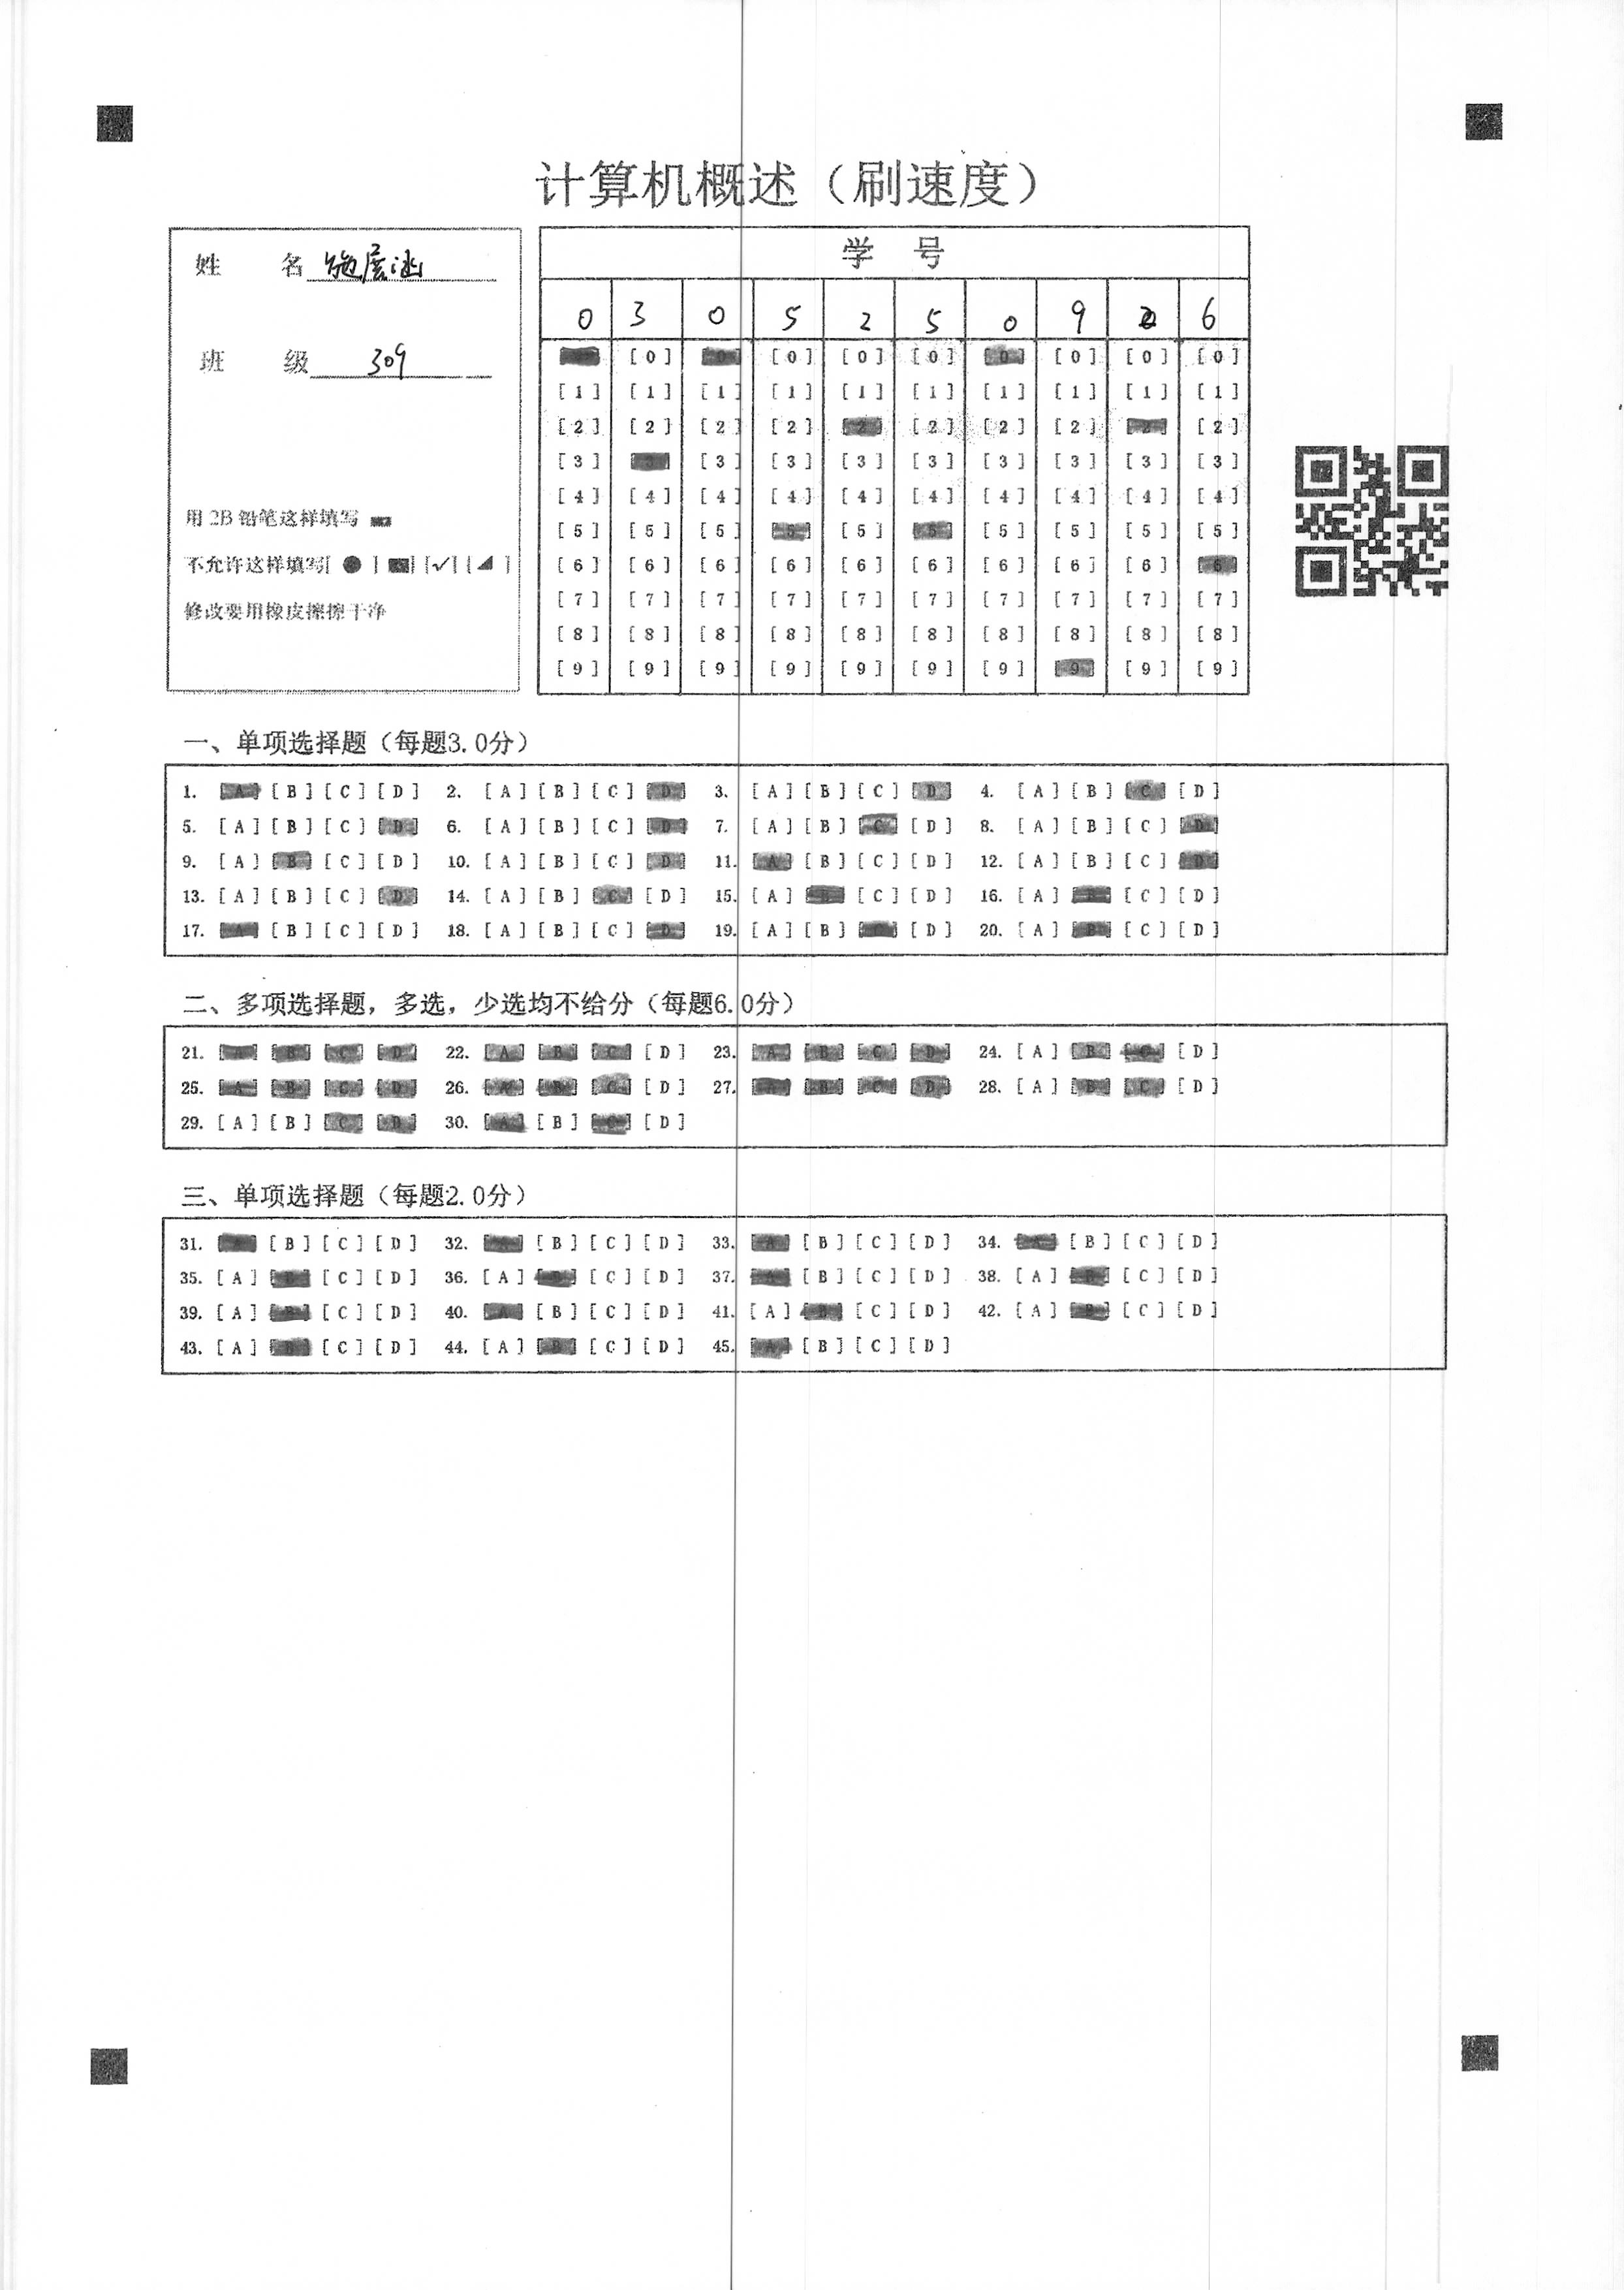 计算机概述（刷速度）
姓 名 施 涵
班 级 309
用 2B 铅笔这样填写
不允许这样填写[ ● ] [■] [✓] [◢ ]
修改要用橡皮擦擦干净
学 号
0 3 0 5 2 5 0 9 2 6
[0] [0] [0] [0] [0] [0] [0] [0] [0] [0]
[1] [1] [1] [1] [1] [1] [1] [1] [1] [1]
[2] [2] [2] [2] [2] [2] [2] [2] [2] [2]
[3] [3] [3] [3] [3] [3] [3] [3] [3] [3]
[4] [4] [4] [4] [4] [4] [4] [4] [4] [4]
[5] [5] [5] [5] [5] [5] [5] [5] [5] [5]
[6] [6] [6] [6] [6] [6] [6] [6] [6] [6]
[7] [7] [7] [7] [7] [7] [7] [7] [7] [7]
[8] [8] [8] [8] [8] [8] [8] [8] [8] [8]
[9] [9] [9] [9] [9] [9] [9] [9] [9] [9]
一、单项选择题（每题3.0分）
1. [A] [B] [C] [D] 2. [A] [B] [C] [D] 3. [A] [B] [C] [D] 4. [A] [B] [C] [D]
5. [A] [B] [C] [D] 6. [A] [B] [C] [D] 7. [A] [B] [C] [D] 8. [A] [B] [C] [D]
9. [A] [B] [C] [D] 10. [A] [B] [C] [D] 11. [A] [B] [C] [D] 12. [A] [B] [C] [D]
13. [A] [B] [C] [D] 14. [A] [B] [C] [D] 15. [A] [B] [C] [D] 16. [A] [B] [C] [D]
17. [A] [B] [C] [D] 18. [A] [B] [C] [D] 19. [A] [B] [C] [D] 20. [A] [B] [C] [D]
二、多项选择题，多选，少选均不给分（每题6.0分）
21. [A] [B] [C] [D] 22. [A] [B] [C] [D] 23. [A] [B] [C] [D] 24. [A] [B] [C] [D]
25. [A] [B] [C] [D] 26. [A] [B] [C] [D] 27. [A] [B] [C] [D] 28. [A] [B] [C] [D]
29. [A] [B] [C] [D] 30. [A] [B] [C] [D]
三、单项选择题（每题2.0分）
31. [A] [B] [C] [D] 32. [A] [B] [C] [D] 33. [A] [B] [C] [D] 34. [A] [B] [C] [D]
35. [A] [B] [C] [D] 36. [A] [B] [C] [D] 37. [A] [B] [C] [D] 38. [A] [B] [C] [D]
39. [A] [B] [C] [D] 40. [A] [B] [C] [D] 41. [A] [B] [C] [D] 42. [A] [B] [C] [D]
43. [A] [B] [C] [D] 44. [A] [B] [C] [D] 45. [A] [B] [C] [D]